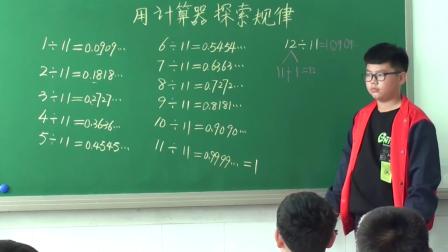 用计算器探索规律
1÷11=0.0909…
2÷11=0.1818…
3÷11=0.2727…
4÷11=0.3636…
5÷11=0.4545…
6÷11=0.5454…
7÷11=0.6363…
8÷11=0.7272…
9÷11=0.8181…
10÷11=0.9090…
11÷11=0.9999…=1
12÷11=1.0909…
11+1=12